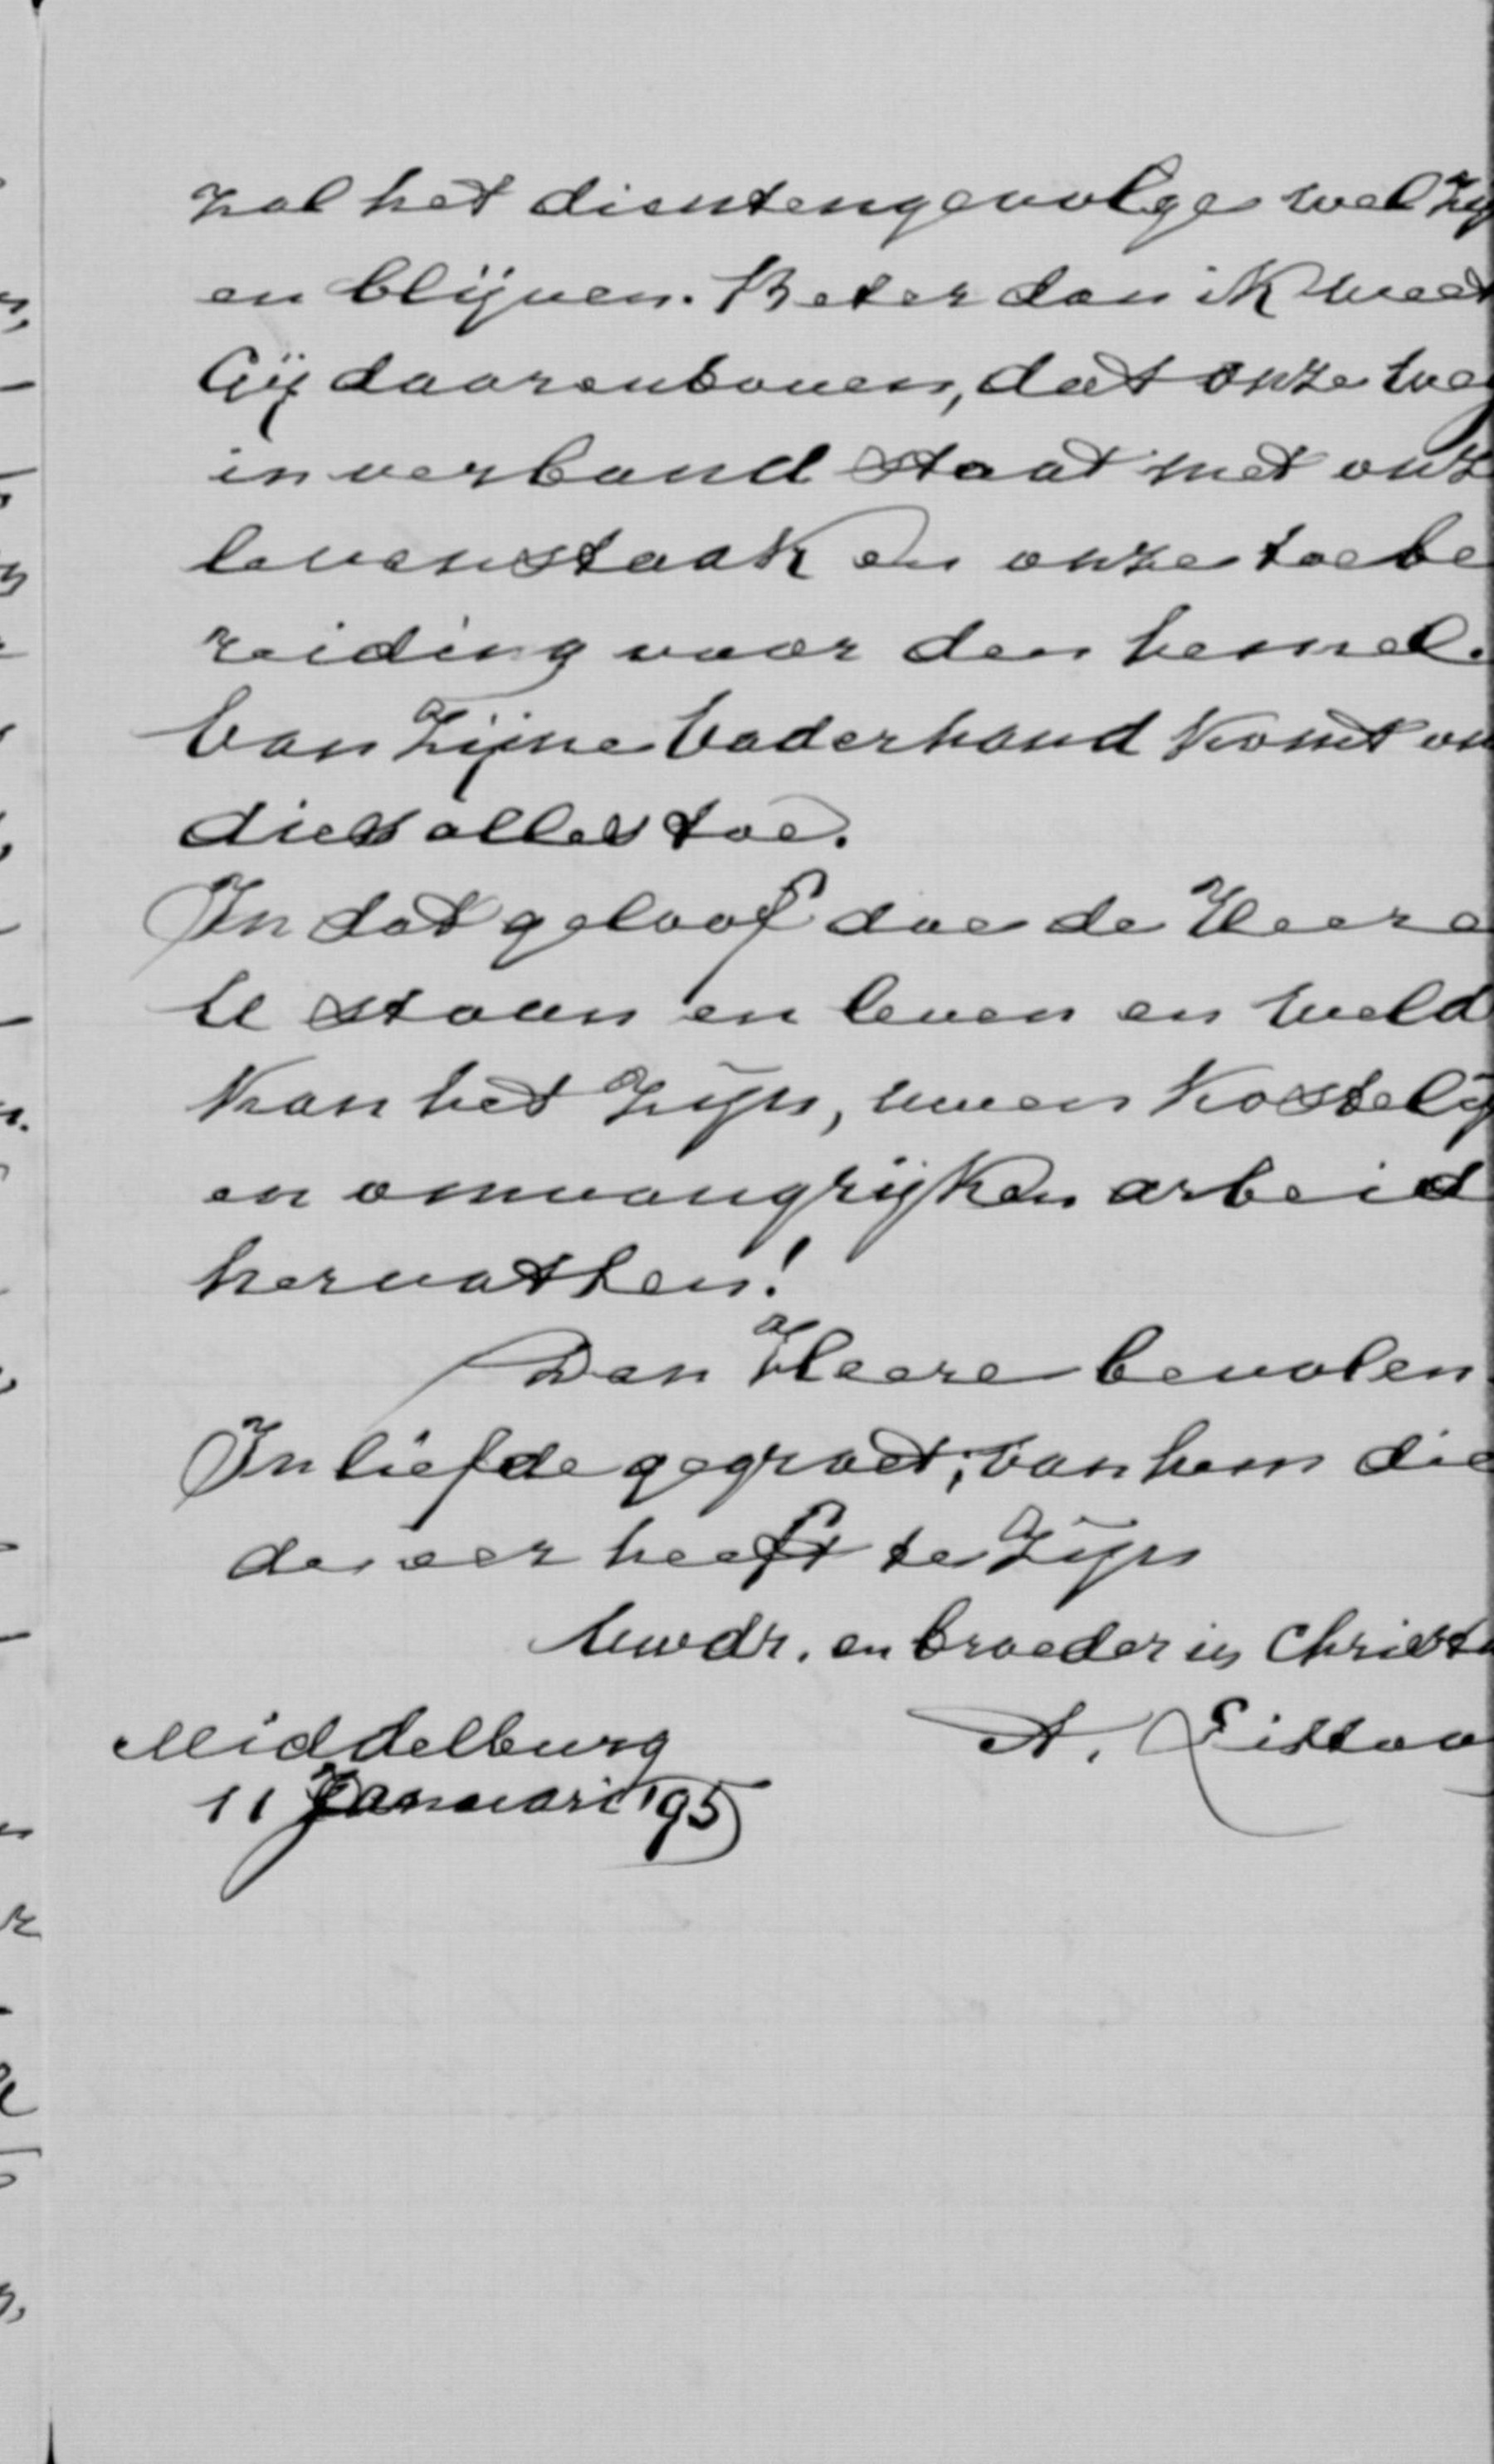 zal het dienstengevolge wel zij
en blijven. Beter dan ik weet
Gij daarenboven, dat onze weg
in verband staat met onz
levenstaak en onze toebe
reiding voor den hemel.
Van Zijne Vaderhand komt on
dies alles toe.
In dat geloof doe de Heere
U staan en leven en weld
kan het zijn, uwen kostelij
en omvangrijken arbeid
hervatten!
Den Heere bevolen.
In liefde gegroet, van hem die
de eer heeft te zijn
Uwdr. en broeder in Christ
Middelburg A. Littoo
11 Januari '95